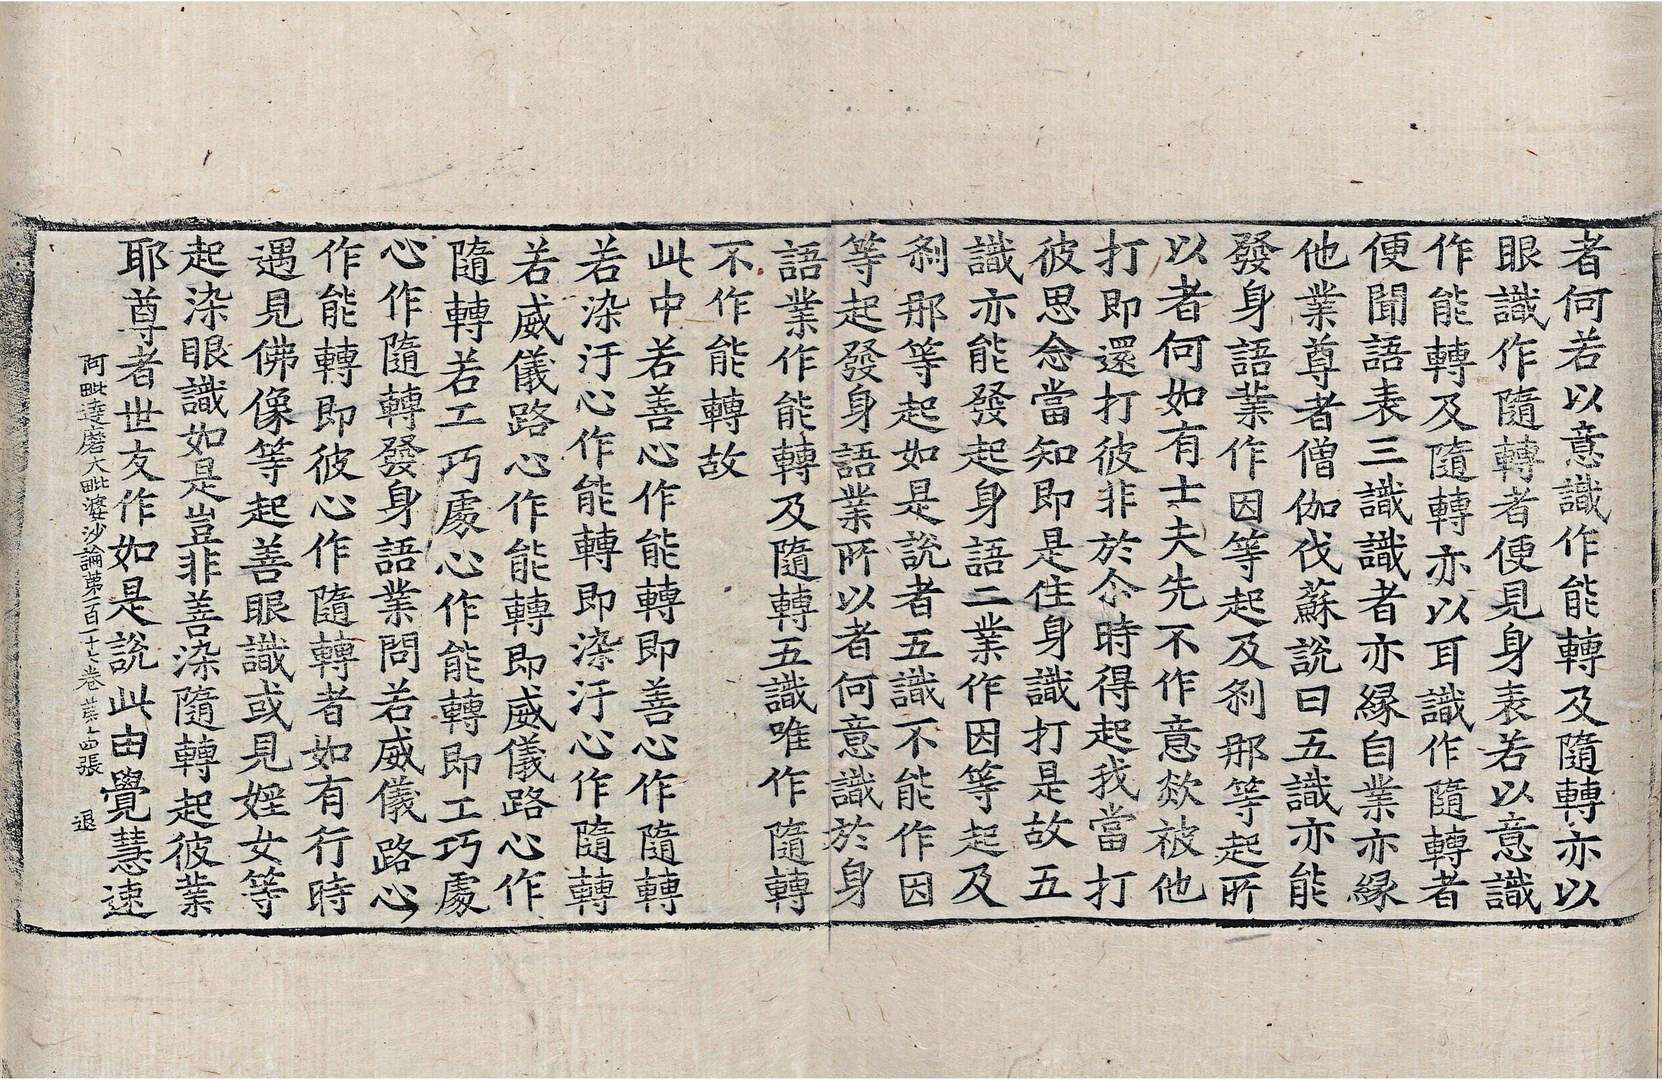 者何若以意識作能轉及隨轉亦以
眼識作隨轉者便見身表若以意識
作能轉及隨轉亦以耳識作隨轉者
便聞語表三識識者亦緣自業亦緣
他業尊者僧伽伐蘇說曰五識亦能
發身語業作因等起及刹那等起所
以者何如有士夫先不作意欻被他
打即還打彼非於尒時得起我當打
彼思念當知即是住身識打是故五
識亦能發起身語二業作因等起及
刹那等起如是說者五識不能作因
等起發身語業所以者何意識於身
語業作能轉及隨轉五識唯作隨轉
不作能轉故
此中若善心作能轉即善心作隨轉
若染汙心作能轉即染汙心作隨轉
若威儀路心作能轉即威儀路心作
隨轉若工巧處心作能轉即工巧處
心作隨轉發身語業問若威儀路心
作能轉即彼心作隨轉者如有行時
遇見佛像等起善眼識或見婬女等
起染眼識如是豈非善染隨轉起彼業
耶尊者世友作如是說此由覺慧速
阿毗達磨大毗婆沙論第一百一十七卷 第十四張 退